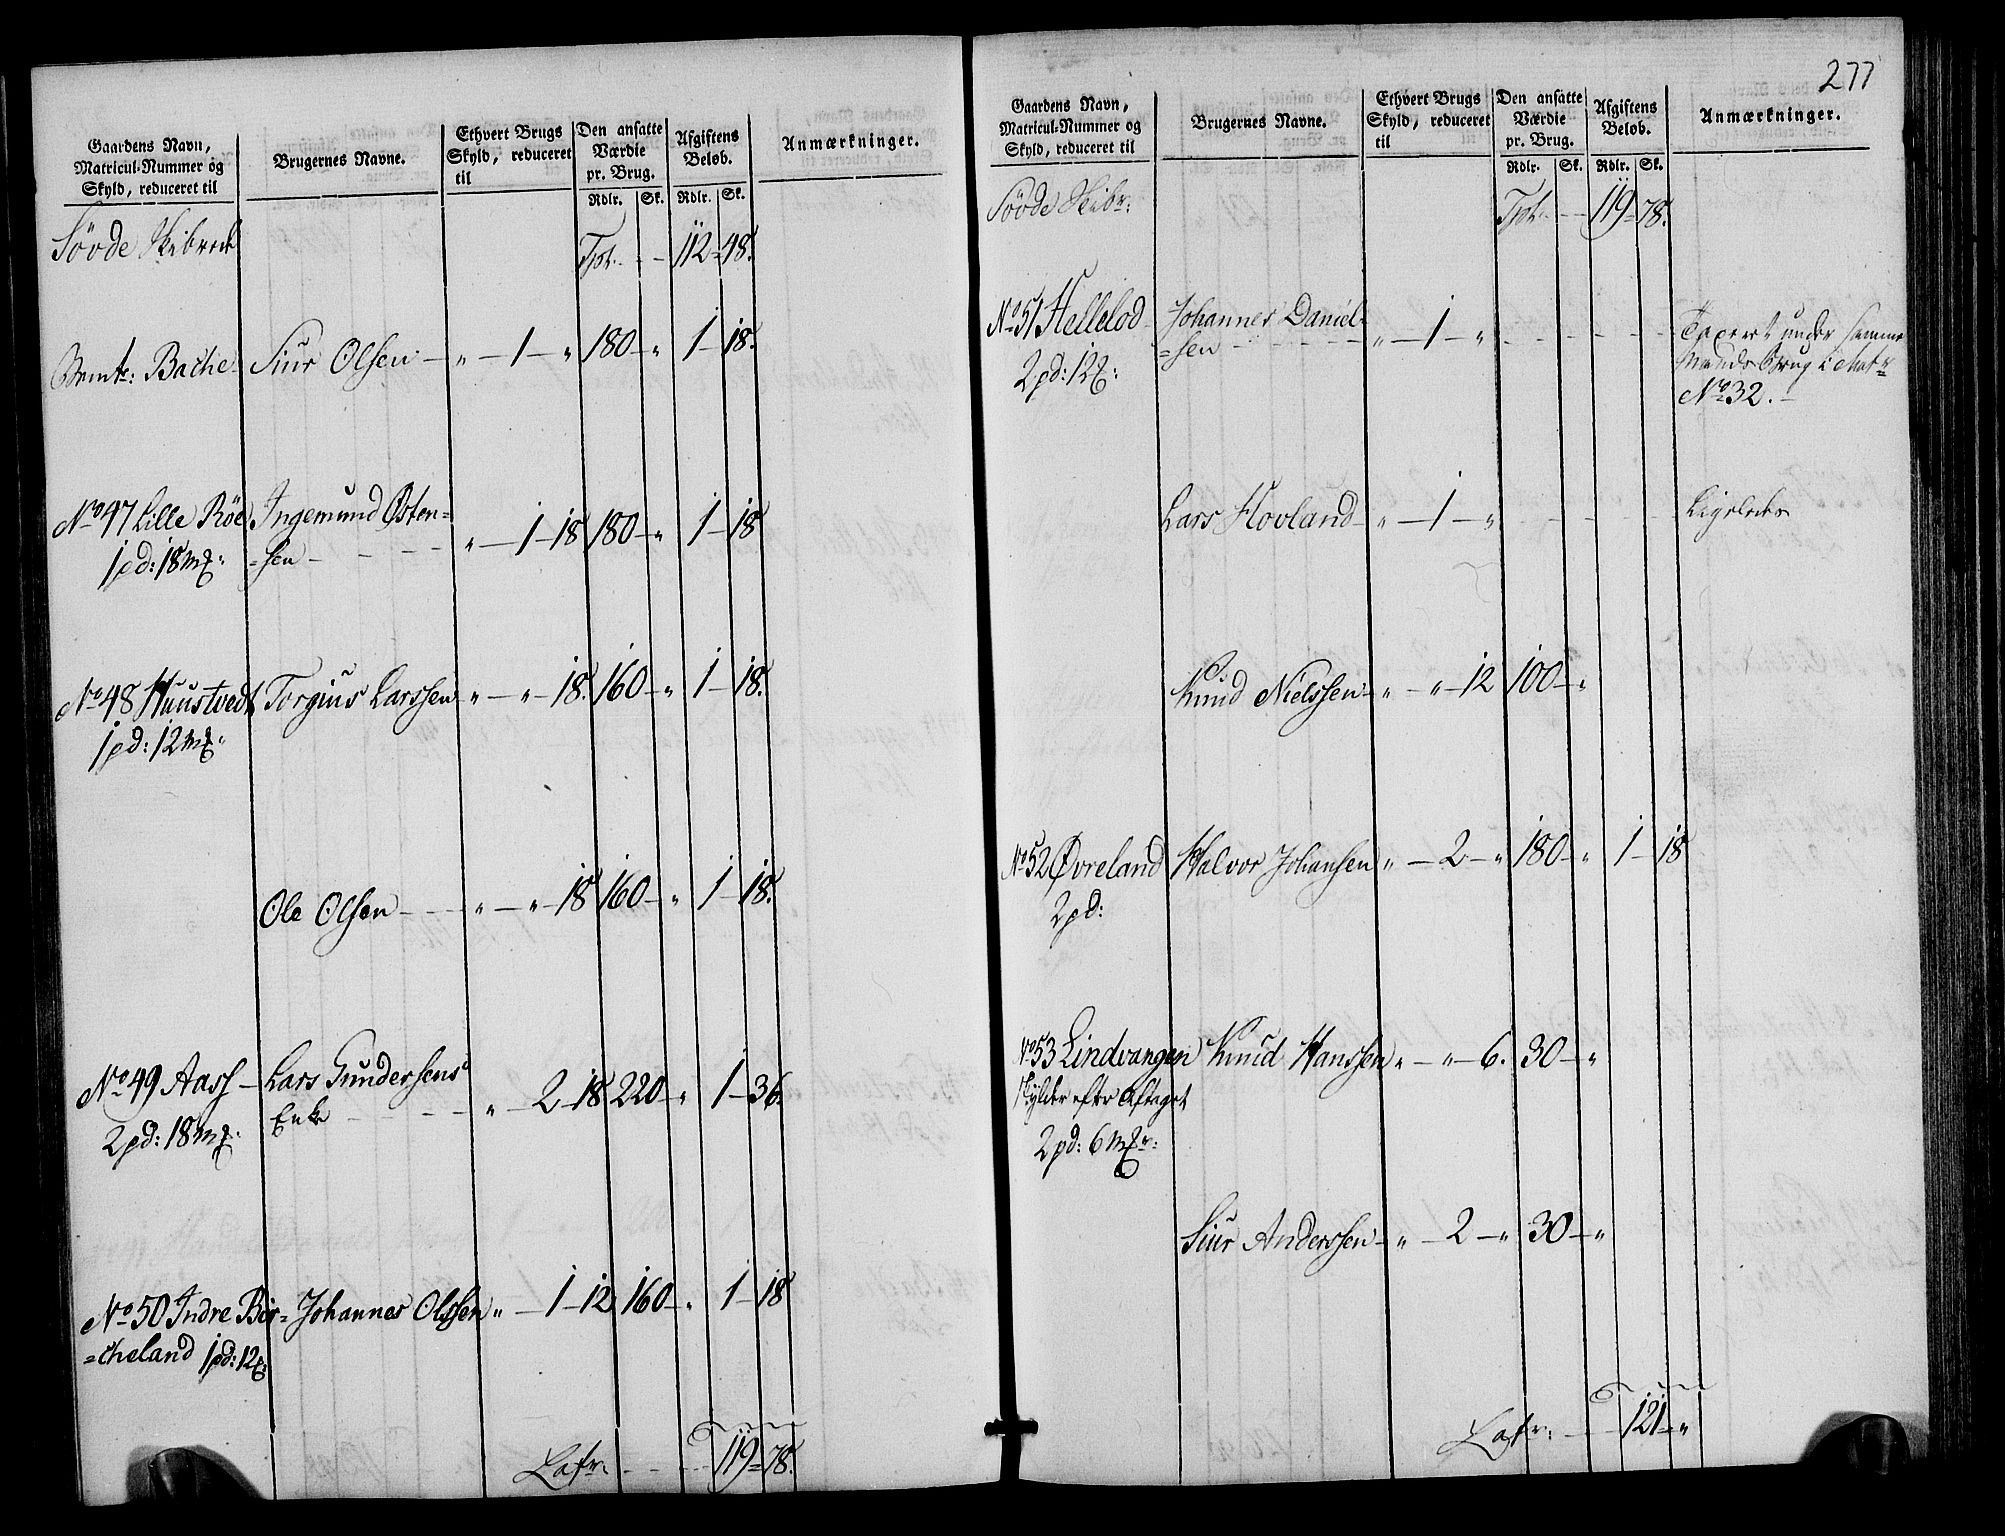 Gaardens Navn,
Matricul-Nummer og
Skyld, reduceret til
Brugernes Navne.
Ethvert Brugs
Skyld, reduceret
til
Den ansatte
Værdie
pr. Brug.
Rdlr. Sk.
Afgiftens
Beløb.
Rdlr. Sk.
Anmærkninger.
Søvde Skibrede
Tpt. - - 112 - 48.
Bemte: Bache. Siur Olsen - " - 1 - " 180 - " 1 - 18.
No 47 Lille Röe Ingemund Østen=
1 pd: 18 mk: =sen - - - - " - 1 - 18 180 - " 1 - 18
No 48 Huustvedt Torgius Larssen - " - " - 18. 160 - " 1 - 18.
1 pd: 12 mk:
Ole Olsen - - - " - " - 18 160 - " 1 - 18.
No 49 Aass - Lars Gundersens
2 pd: 18 mk: Enke - - - - " - 2 - 18 220 - " 1 - 36.
No 50 Indre Bör= Johannes Olssen " - 1 - 12 160 - " 1 - 18
=cheland 1 pd: 12
Lafr: - - - 119 - 78.
277
Gaardens Navn,
Matricul-Nummer og
Skyld, reduceret til
Brugernes Navne.
Ethvert Brugs
Skyld, reduceret
til
Den ansatte
Værdie
pr. Brug.
Rdlr. Sk.
Afgiftens
Beløb.
Rdlr. Sk.
Anmærkninger.
Søvde Skibr:
Tpt. - - 119 - 78.
No 51 Hellelod Johannes Daniel= Taxeret under samme
2 pd: 12 =sen - - - - " - 1 - " - - - - - Mands Brug i Mat:
No 32. -
Lars Hovland - " - 1 - " - - - - - Ligeledes
Knud Nielssen - " - " - 12 100 - "
No 52 Øvreland Halvor Johansen " - 2 - " 180 - " 1 - 18
2 pd:
No 53 Lindvangen Knud Hanssen " - " - 6. 30 - "
skylder efter Aftaget
2 pd: 6 mkr:
Siur Anderssen - " - 2 - " 30 - "
Lafr: - - 121 - "